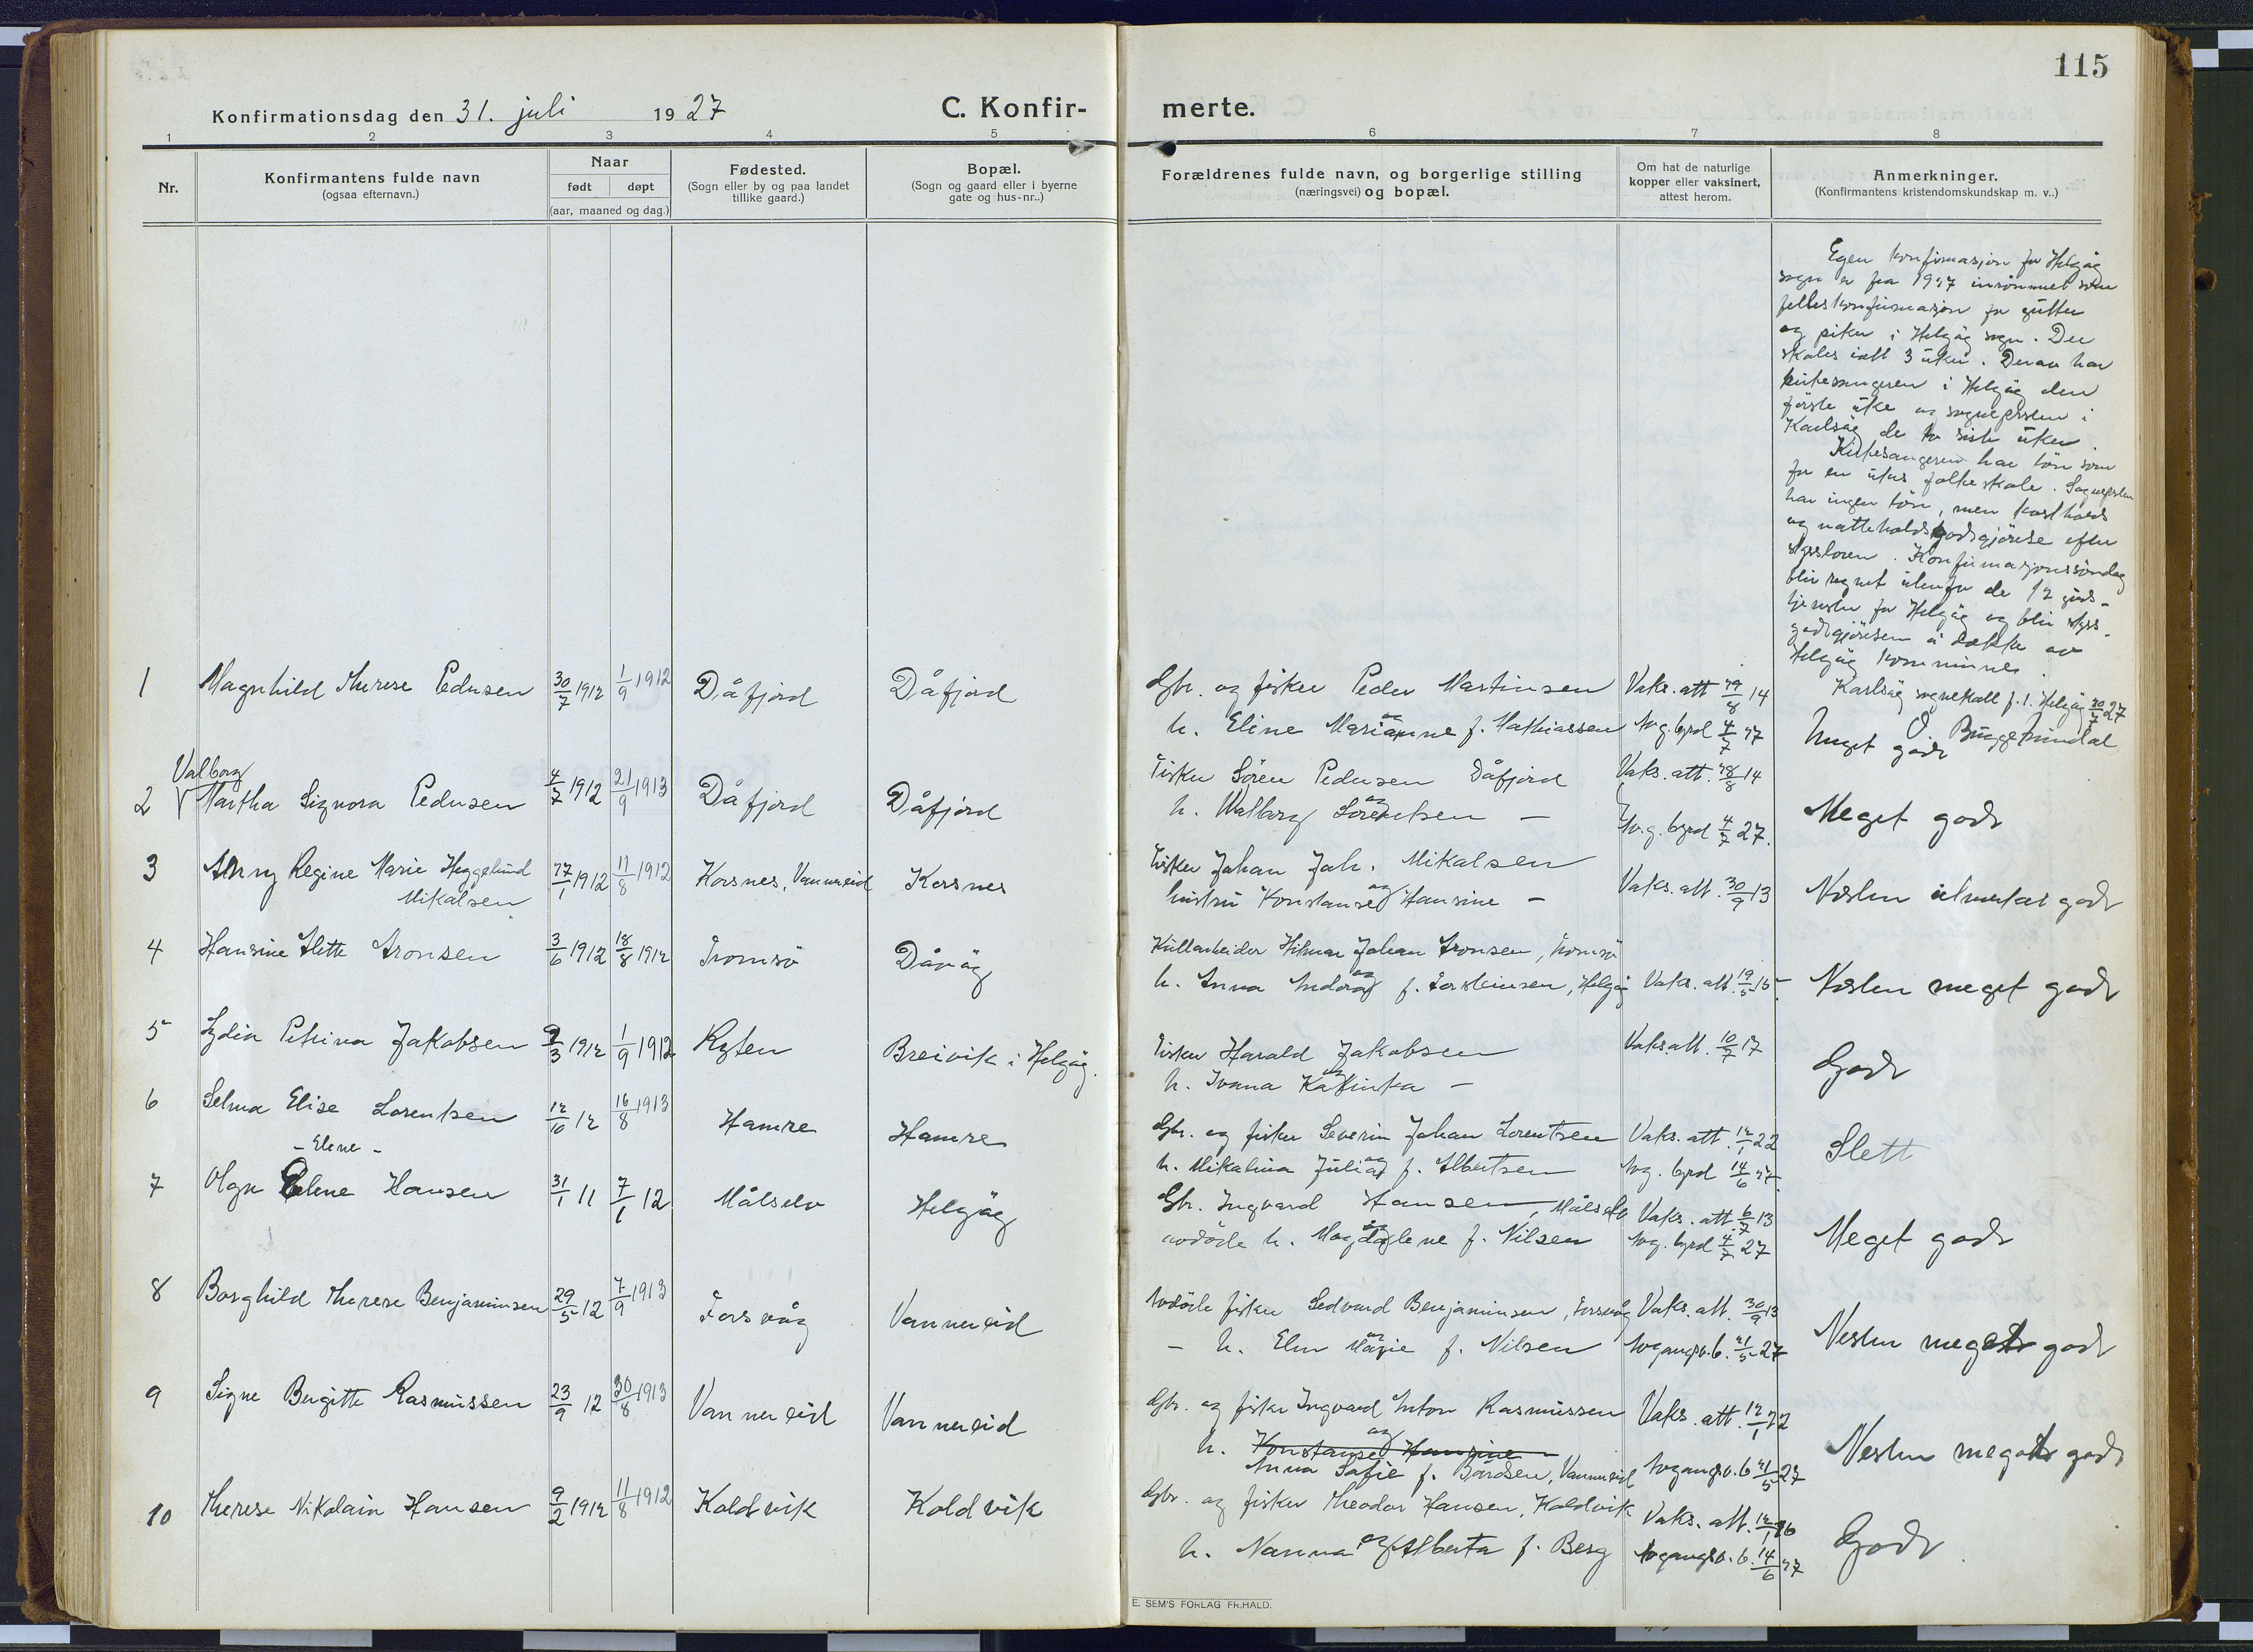 115
Konfirmationsdag den 31. juli 1927
C. Konfir-
merte.
1 2 3 4 5 6 7 8
Nr.
Konfirmantens fulde navn
(ogsaa efternavn.)
Naar
født døpt
(aar, maaned og dag.)
Fødested.
(Sogn eller by og paa landet
tillike gaard.)
Bopæl.
(Sogn og gaard eller i byerne
gate og hus-nr..)
Forældrenes fulde navn, og borgerlige stilling
(næringsvei) og bopæl.
Om hat de naturlige
kopper eller vaksinert,
attest herom.
Anmerkninger.
(Konfirmantens kristendomskundskap m. v..)
Egen konfirmasjon for Helgöy
sogn er fra 1927 innrömmet som
felleskonfirmasjon for gutter
og piker i Helgöy sogn. Der
skoles ialt 3 uker. Derav har
kirkesangeren i Helgöy den
förste uke og sogneprsten i
Karlsöy de to siste uker.
Kirkesangeren har lön som
for en ukes folkeskole. Sogneprsten
har ingen lön, men kostholds
og natteholdsgodtgjörelse efter
skyssloven. Konfirmasjonssöndag
blir regnet utenfor de 12 guds-
tjenester for Helgöy og blir skyss-
godtgjörelsen å dekke av
Helgöy kommune.
Karlsöy sognekall p. t. Helgöy 30/7 27
O. Bugge
1 Magnhild Therese Pedersen 30/7 1912 1/9 1912 Dåfjord Dåfjord
Gbr. og fisker Peder Martinsen Vaks. att 29/8 14
og
h. Eline Marianne f. Mathiassen Avg. byrd 4/7 27 Meget godt
Valborg
2 V Martha Signora Pedersen 4/7 1912 21/9 1913 Dåfjord Dåfjord
Fisker Sören Pedersen Dåfjord Vaks. att. 28/8 14
og
h. Walborg Sorentsen — Avg. byrd 4/7 27. Meget godt
3 Anny Regine Marie Heggelund 27/1 1912 11/8 1912 Korsnes, Vannereid Korsnes
Mikalsen
Fisker Johan Joh. Mikalsen
og
hustru Konstanse Hansine — Vaks. att. 30/9 13 Nesten utmerket godt
4 Hansine Alette Aronsen 3/6 1912 18/8 1912 Tromsö Dåvöy
Kullarbeider Hilmar Johan Aronsen, Tromsö
og
h. Anna Indora f. Torsteinsen, Helgöy Vaks. att. 19/5 15. Nesten meget godt
5 Lydia Petrina Jakobsen 9/3 1912 1/9 1912 Ryten Breivik i Helgöy.
Fisker Harald Jakobsen Vaks att. 10/7 17
og
h. Ivana Katinka — Godt
6 Selma Elise Lorentsen 12/10 12 16/8 1913 Hamre Hamre
Gbr. og fisker Severin Johan Lorentsen Vaks. att. 12/1 22
og
h. Mikalina Julia f. Albertsen Avg. byrd 14/6 27. Slett
- Elene -
7 Olga Elene Hansen 31/1 11 7/1 12 Målselv Helgöy
Gbr. Ingvard Hansen, Målselv Vaks. att. 6/7 13
og
avdöde h. Magdalene f. Nilsen Avg. byrd 4/7 27 Meget godt
8 Borghild Therese Benjaminsen 29/5 12 7/9 1913 Forsvåg Vannereid
Avdöde fisker Sedvard Benjaminsen, Forsvåg Vaks. att. 30/9 13
og
— h. Elen Marie f. Nilsen Avgangsv. b. 21/5 27 Nesten meget godt
9 Signe Birgitte Rasmussen 23/9 12 30/8 1913 Vannereid Vannereid
Gbr. og fisker Ingvard Anton Rasmussen Vaks. att. 12/1 22
og
h. Konstanse Hansine
Anna Sofie f. Bårdsen, Vannereid Avgangsv. b 21/5 27 Nesten meget godt
10 Therese Nikolain Hansen 9/2 1912 11/8 1912 Koldvik Koldvik
Gbr. og fisker Theodor Hansen, Koldvik Vaks. att. 12/1 26
h. Nanna og Alberta f. Berg Avgangsv. b. 14/6 27 Godt.
E. SEM'S FORLAG FR.HALD.